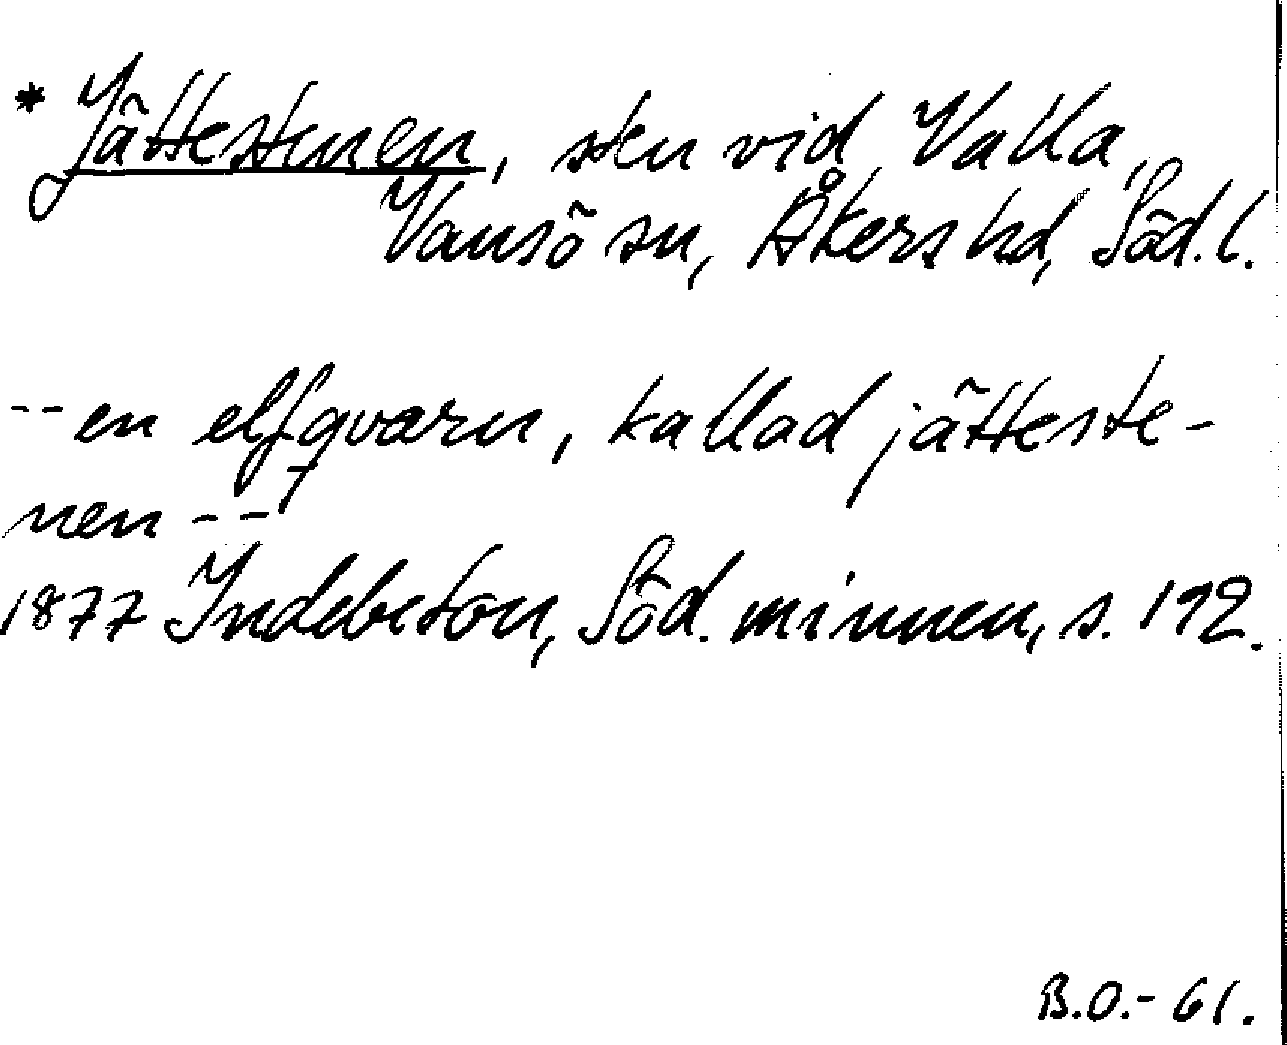 * Jättestenen, sten vid Valla,
Vansö sn, Åkers hd, Söd.l.
--en elfqvarn, kallad jätteste-
nen--
1877 Indebetou, Söd. minnen, s. 192.
B.O.-61.